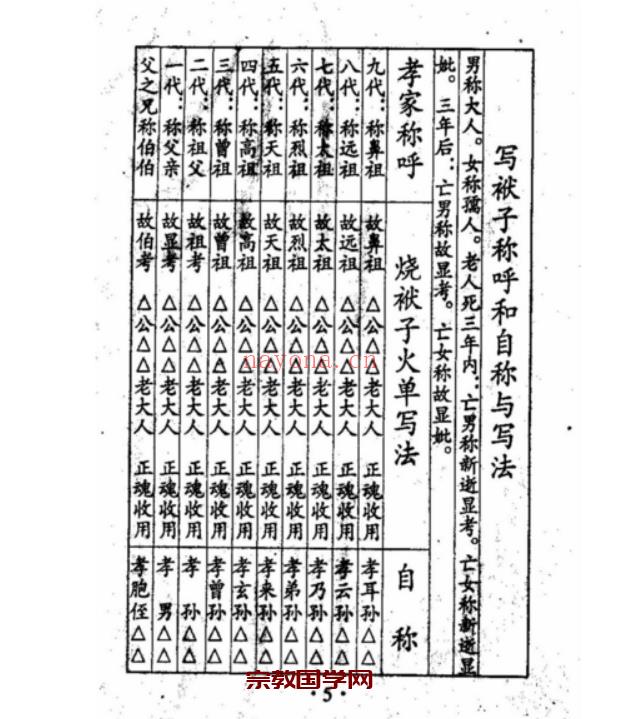 写袱子称呼和自称与写法
男称大人。女称孺人。老人死三年内：亡男称新逝显考。亡女称新逝显
妣。三年后：亡男称故显考。亡女称故显妣。
孝家称呼 烧袱子火单写法 自称
九代：称鼻祖 故鼻祖 △公△△老大人 正魂收用 孝耳孙△△
八代：称远祖 故远祖 △公△△老大人 正魂收用 孝云孙△△
七代：称太祖 故太祖 △公△△老大人 正魂收用 孝乃孙△△
六代：称烈祖 故烈祖 △公△△老大人 正魂收用 孝弟孙△△
五代：称天祖 故天祖 △公△△老大人 正魂收用 孝来孙△△
四代：称高祖 故高祖 △公△△老大人 正魂收用 孝玄孙△△
三代：称曾祖 故曾祖 △公△△老大人 正魂收用 孝曾孙△△
二代：称祖父 故祖考 △公△△老大人 正魂收用 孝孙△△
一代：称父亲 故显考 △公△△老大人 正魂收用 孝男△△
父之兄称伯伯 故伯考 △公△△老大人 正魂收用 孝胞侄△△
nayona.cn
宗教国学网
·5·